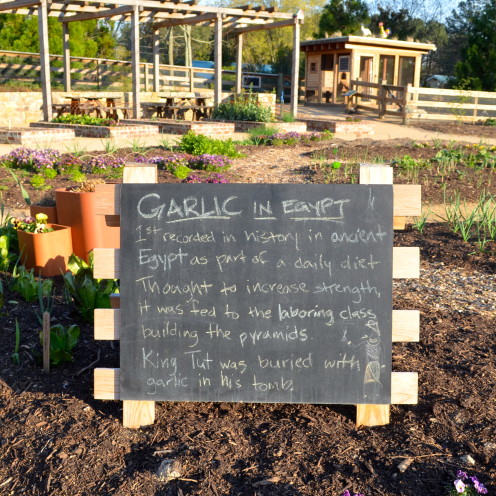 GARLIC IN EGYPT
1st recorded in history in ancient
Egypt as part of a daily diet
Thought to increase strength,
it was fed to the laboring class
building the pyramids.
King Tut was buried with
garlic in his tomb.